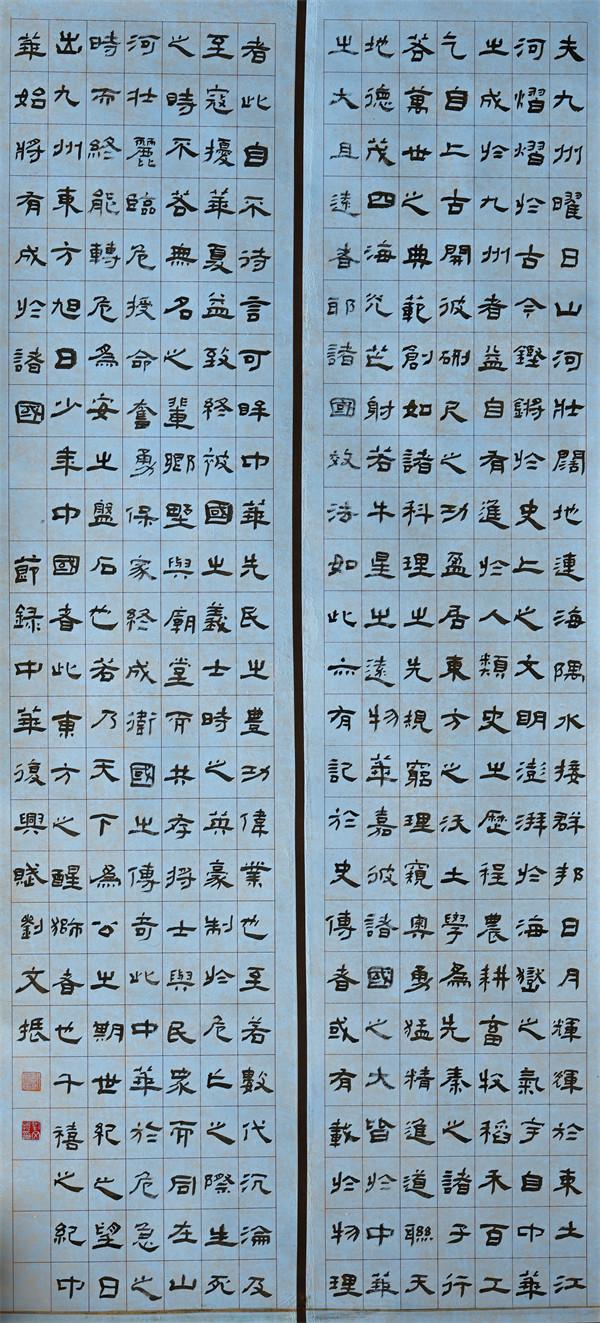 夫九州曜日山河壮闊地連海隅水接群邦日月輝輝於東土江
河熠熠於古今鏗鏘於史上之文明澎湃於海嶽之氣宇自中華
之成於九州者益自有進於人類史之歷程農耕畜牧稻禾百工
乞自上古開彼硎尺之功盈居東方之沃土學為先秦之諸子行
荅萬世之典範創如諸科理之先規窮理窺奧勇猛精進道聯天
地德茂四海光芒射若牛星之遠物華嘉彼諸國之大皆於中華
之大且遠者耶諸國效法如此亦有記於史傳者或有載於物理
者此自不待言可眸中華先民之豊功偉業也至若數代沉淪及
至寇擾華夏益致終被國之義士時之英豪制於危亡之際生死
之時不荅無名之輩鄉野與廟堂而共存將士與民眾而同在山
河壮麗臨危授命奮勇保家終成衛國之傳奇此中華於危急之
時而終能轉危為安之盤石也若乃天下為公之期世紀之望日
出九州東方旭日少年中國者此東方之醒獅者也千禧之紀中
華始將有成於諸國 節録中華復興賦劉文振